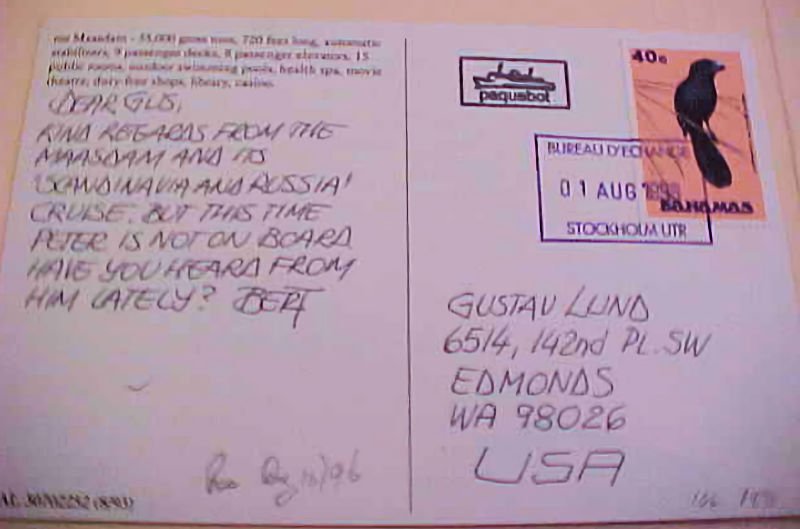 ms Maasdam - 55,000 gross tons, 720 feet long, automatic
stabilizers, 9 passenger decks, 8 passenger elevators, 15
public rooms, outdoor swimming pools, health spa, movie
theatre, duty-free shops, library, casino.
DEAR GUS,
KIND REGARDS FROM THE
MAASDAM AND ITS
'SCANDINAVIA AND RUSSIA'
CRUISE. BUT THIS TIME
PETER IS NOT ON BOARD
HAVE YOU HEARD FROM
HIM LATELY? BERT
paquebot
40c
BAHAMAS
BUREAU D'ECHANGE
01 AUG
STOCKHOLM UTR
GUSTAV LUND
6514, 142nd PL. SW
EDMONDS
WA 98026
USA